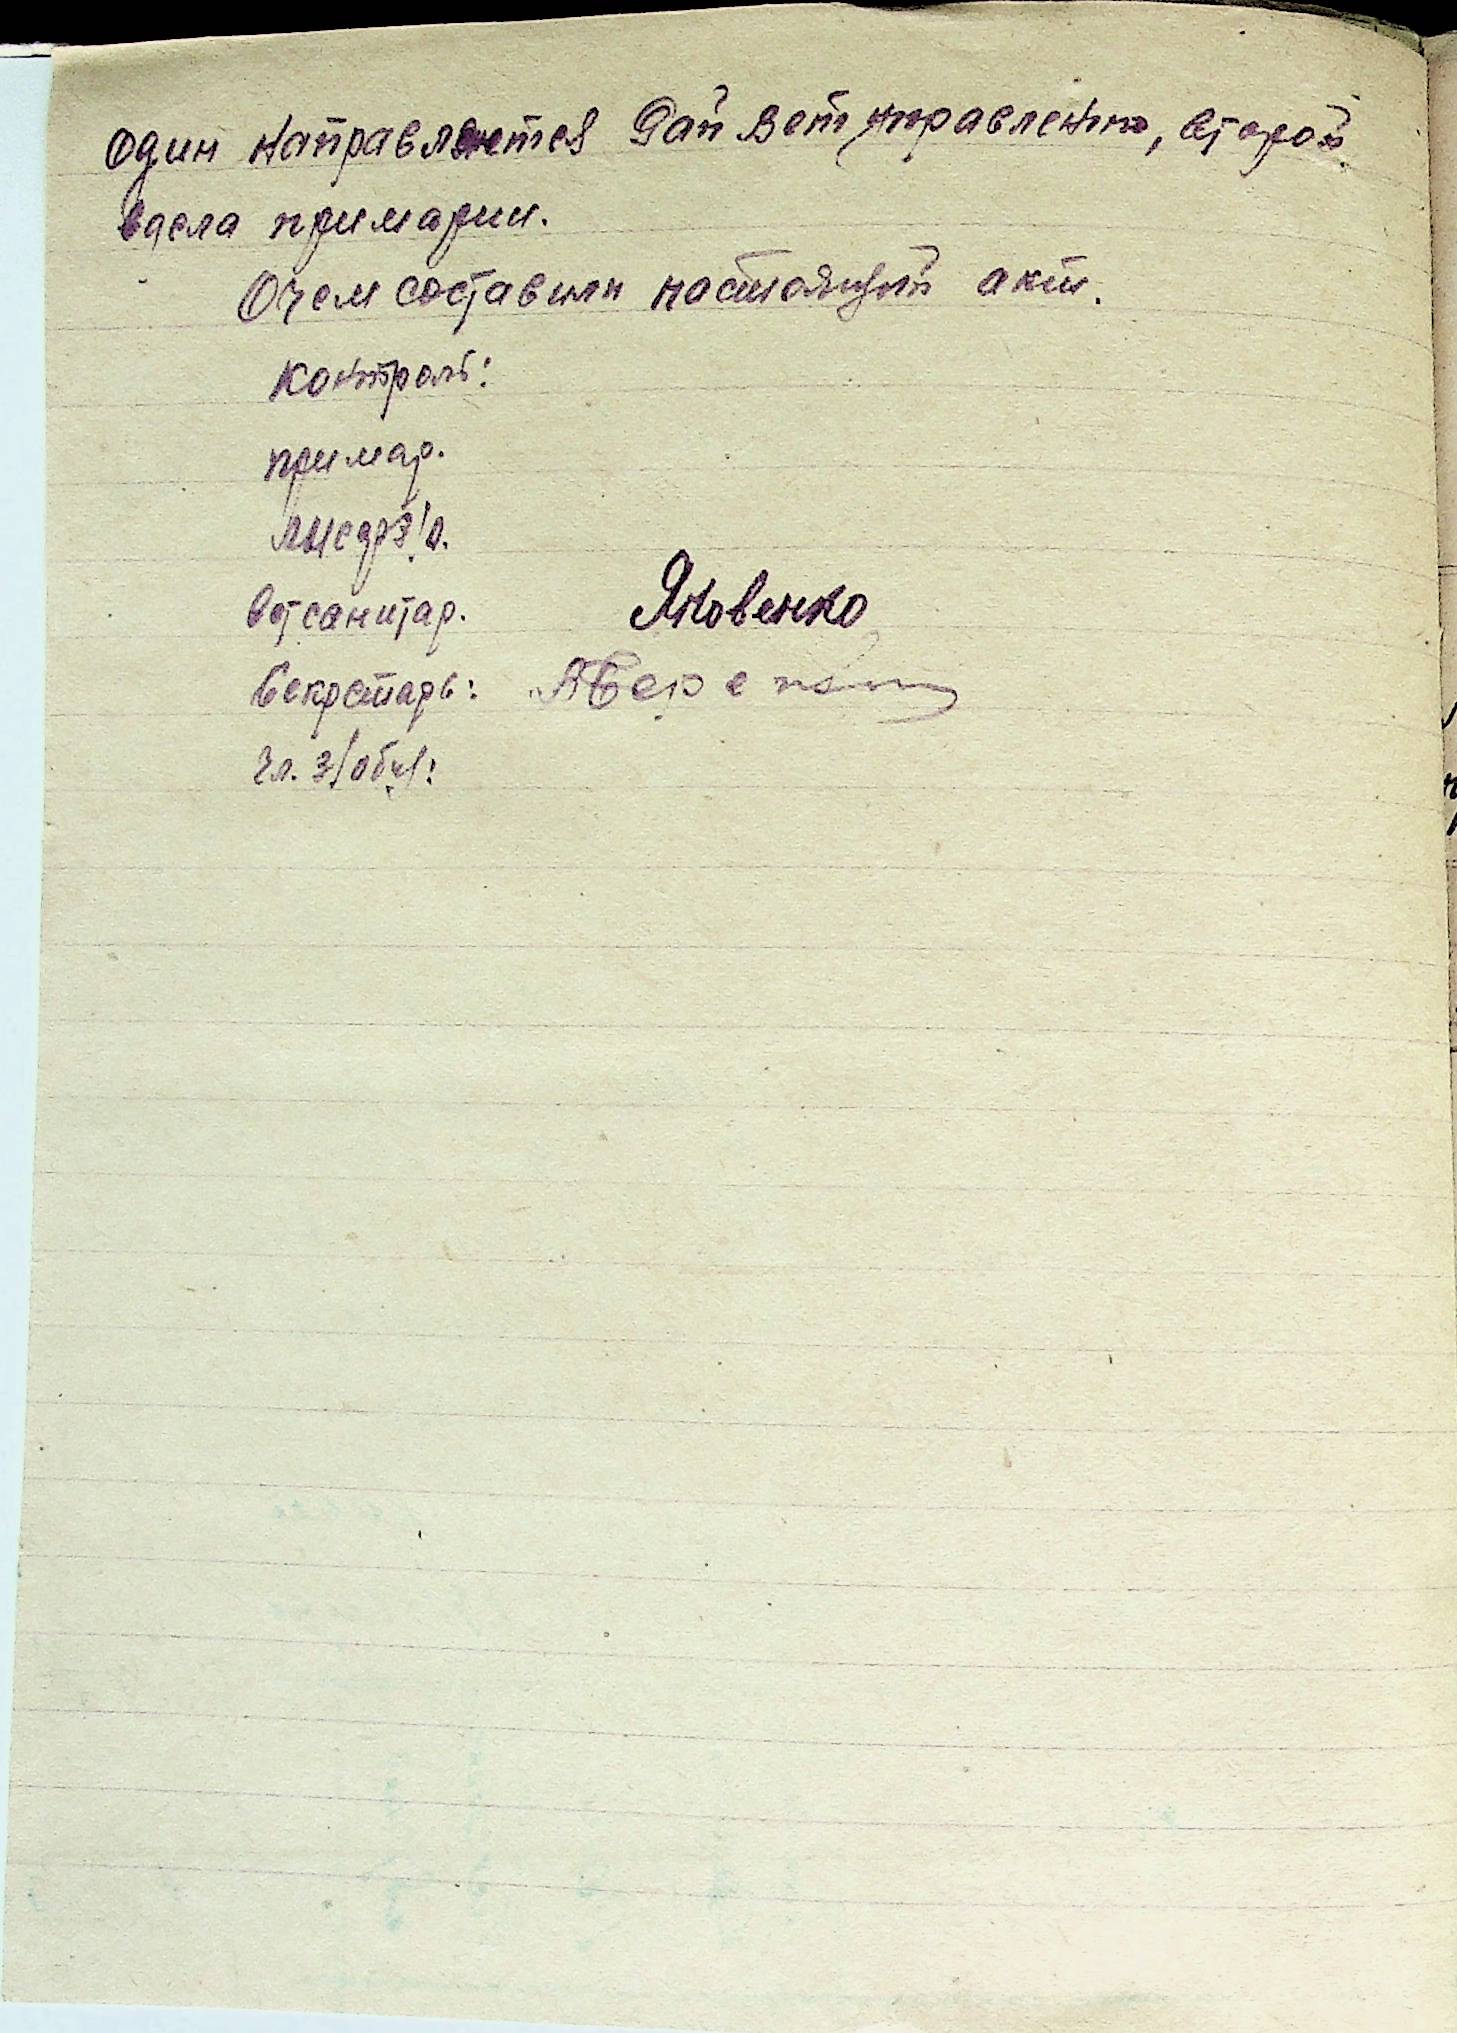 один направляется Рай вет управлению, второй
вдела примарии.
Очем составили настоящий акт.
контроль:
примар.
ветсанитар. Яковенко
Секретарь:
Чл. з/общ: